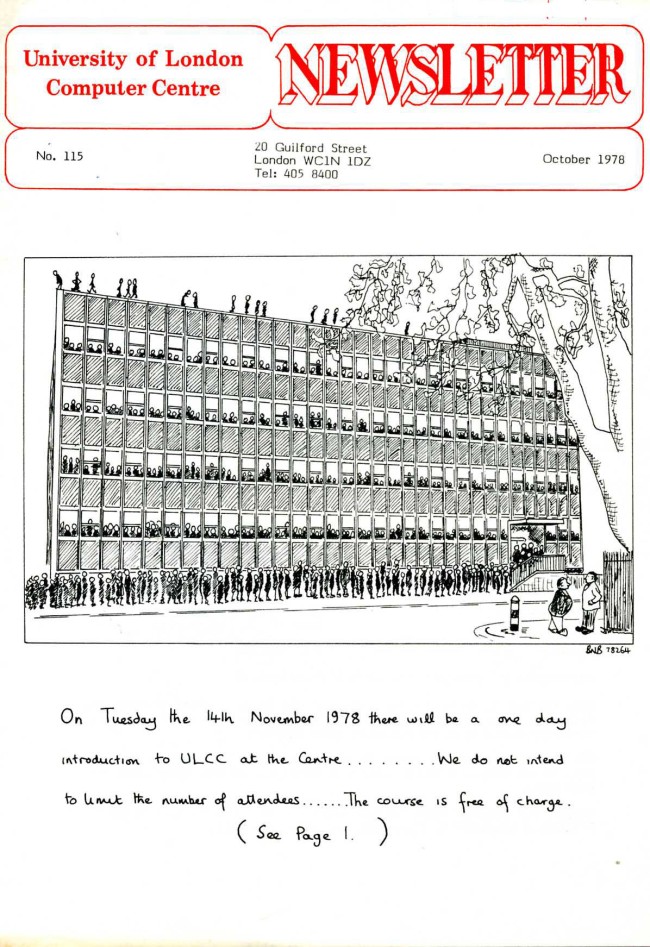 University of London
Computer Centre
NEWSLETTER
No. 115
20 Guilford Street
London WC1N 1DZ
Tel: 405 8400
October 1978
BNB 78264
On Tuesday the 14th November 1978 there will be a one day
introduction to ULCC at the Centre.........We do not intend
to limit the number of attendees.......The course is free of charge.
(See Page 1.)